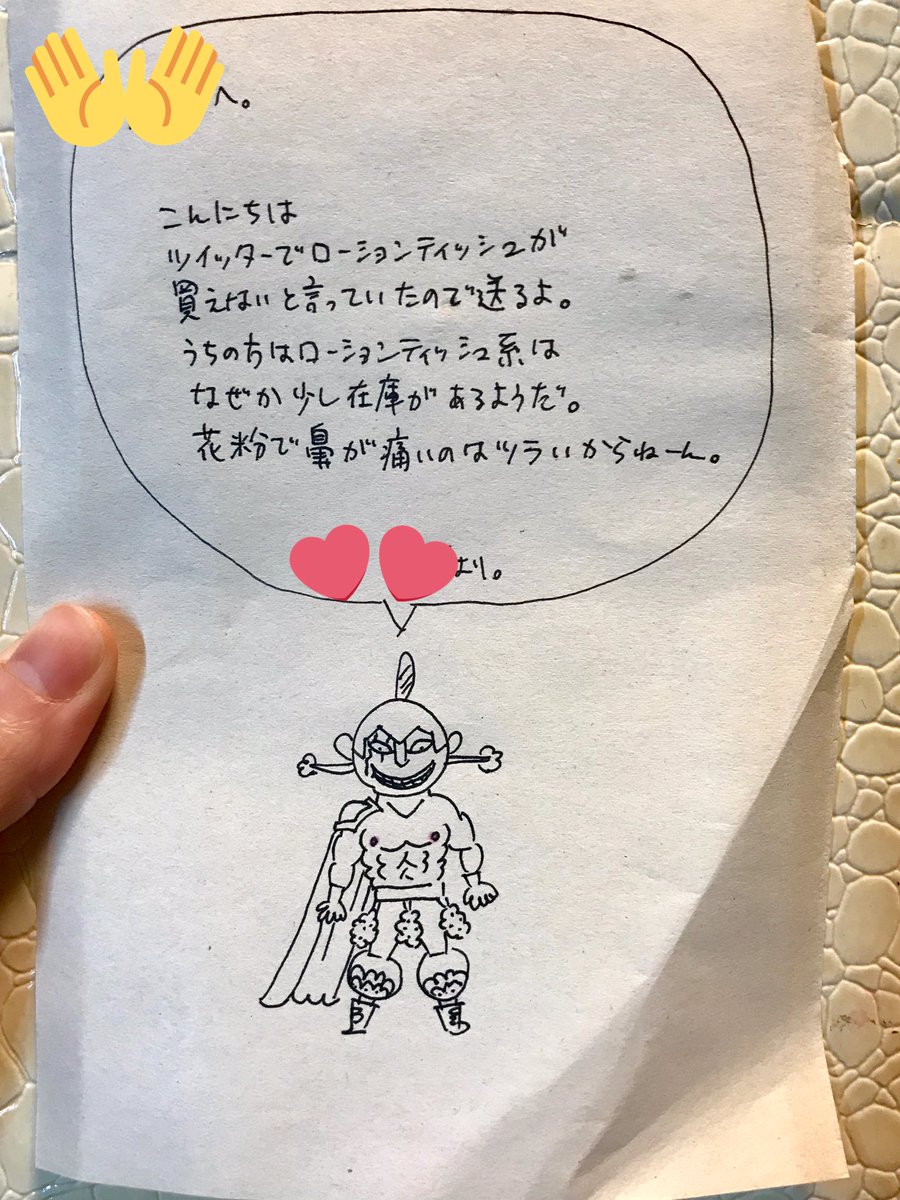 へ。
こんにちは
ツイッターでローションティッシュが
買えないと言っていたので送るよ。
うちの方はローションティッシュ系は
なぜか少し在庫があるようだ。
花粉で鼻が痛いのはツラいからねーん。
より。